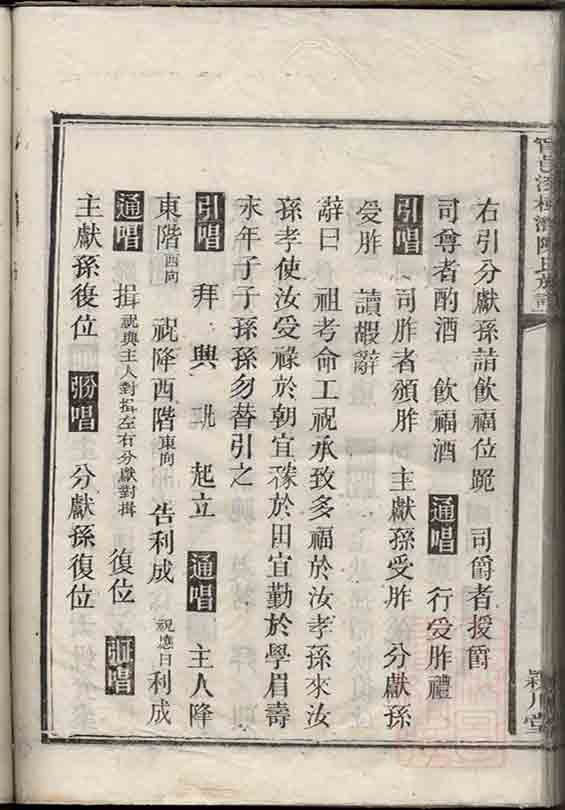 右引分獻孫詣飲福位跪　司爵者授爵
司尊者酌酒　飲福酒　通唱　行受胙禮
引唱　司胙者頒胙　主獻孫受胙　分獻孫
受胙　讀嘏辭
辭曰　祖考命工祝承致多福於汝孝孫來汝
孫孝使汝受祿於朝宜稼於田宜勤於學眉壽
永年子子孫孫勿替引之
引唱　拜　興　起立　通唱　主人降
東階西向　祝降西階東向　告利成　祝應曰利成
通唱　揖祝與主人對揖左右分獻對揖　復位　引唱
主獻孫復位　唱　分獻孫復位
陳氏族譜
潁川堂